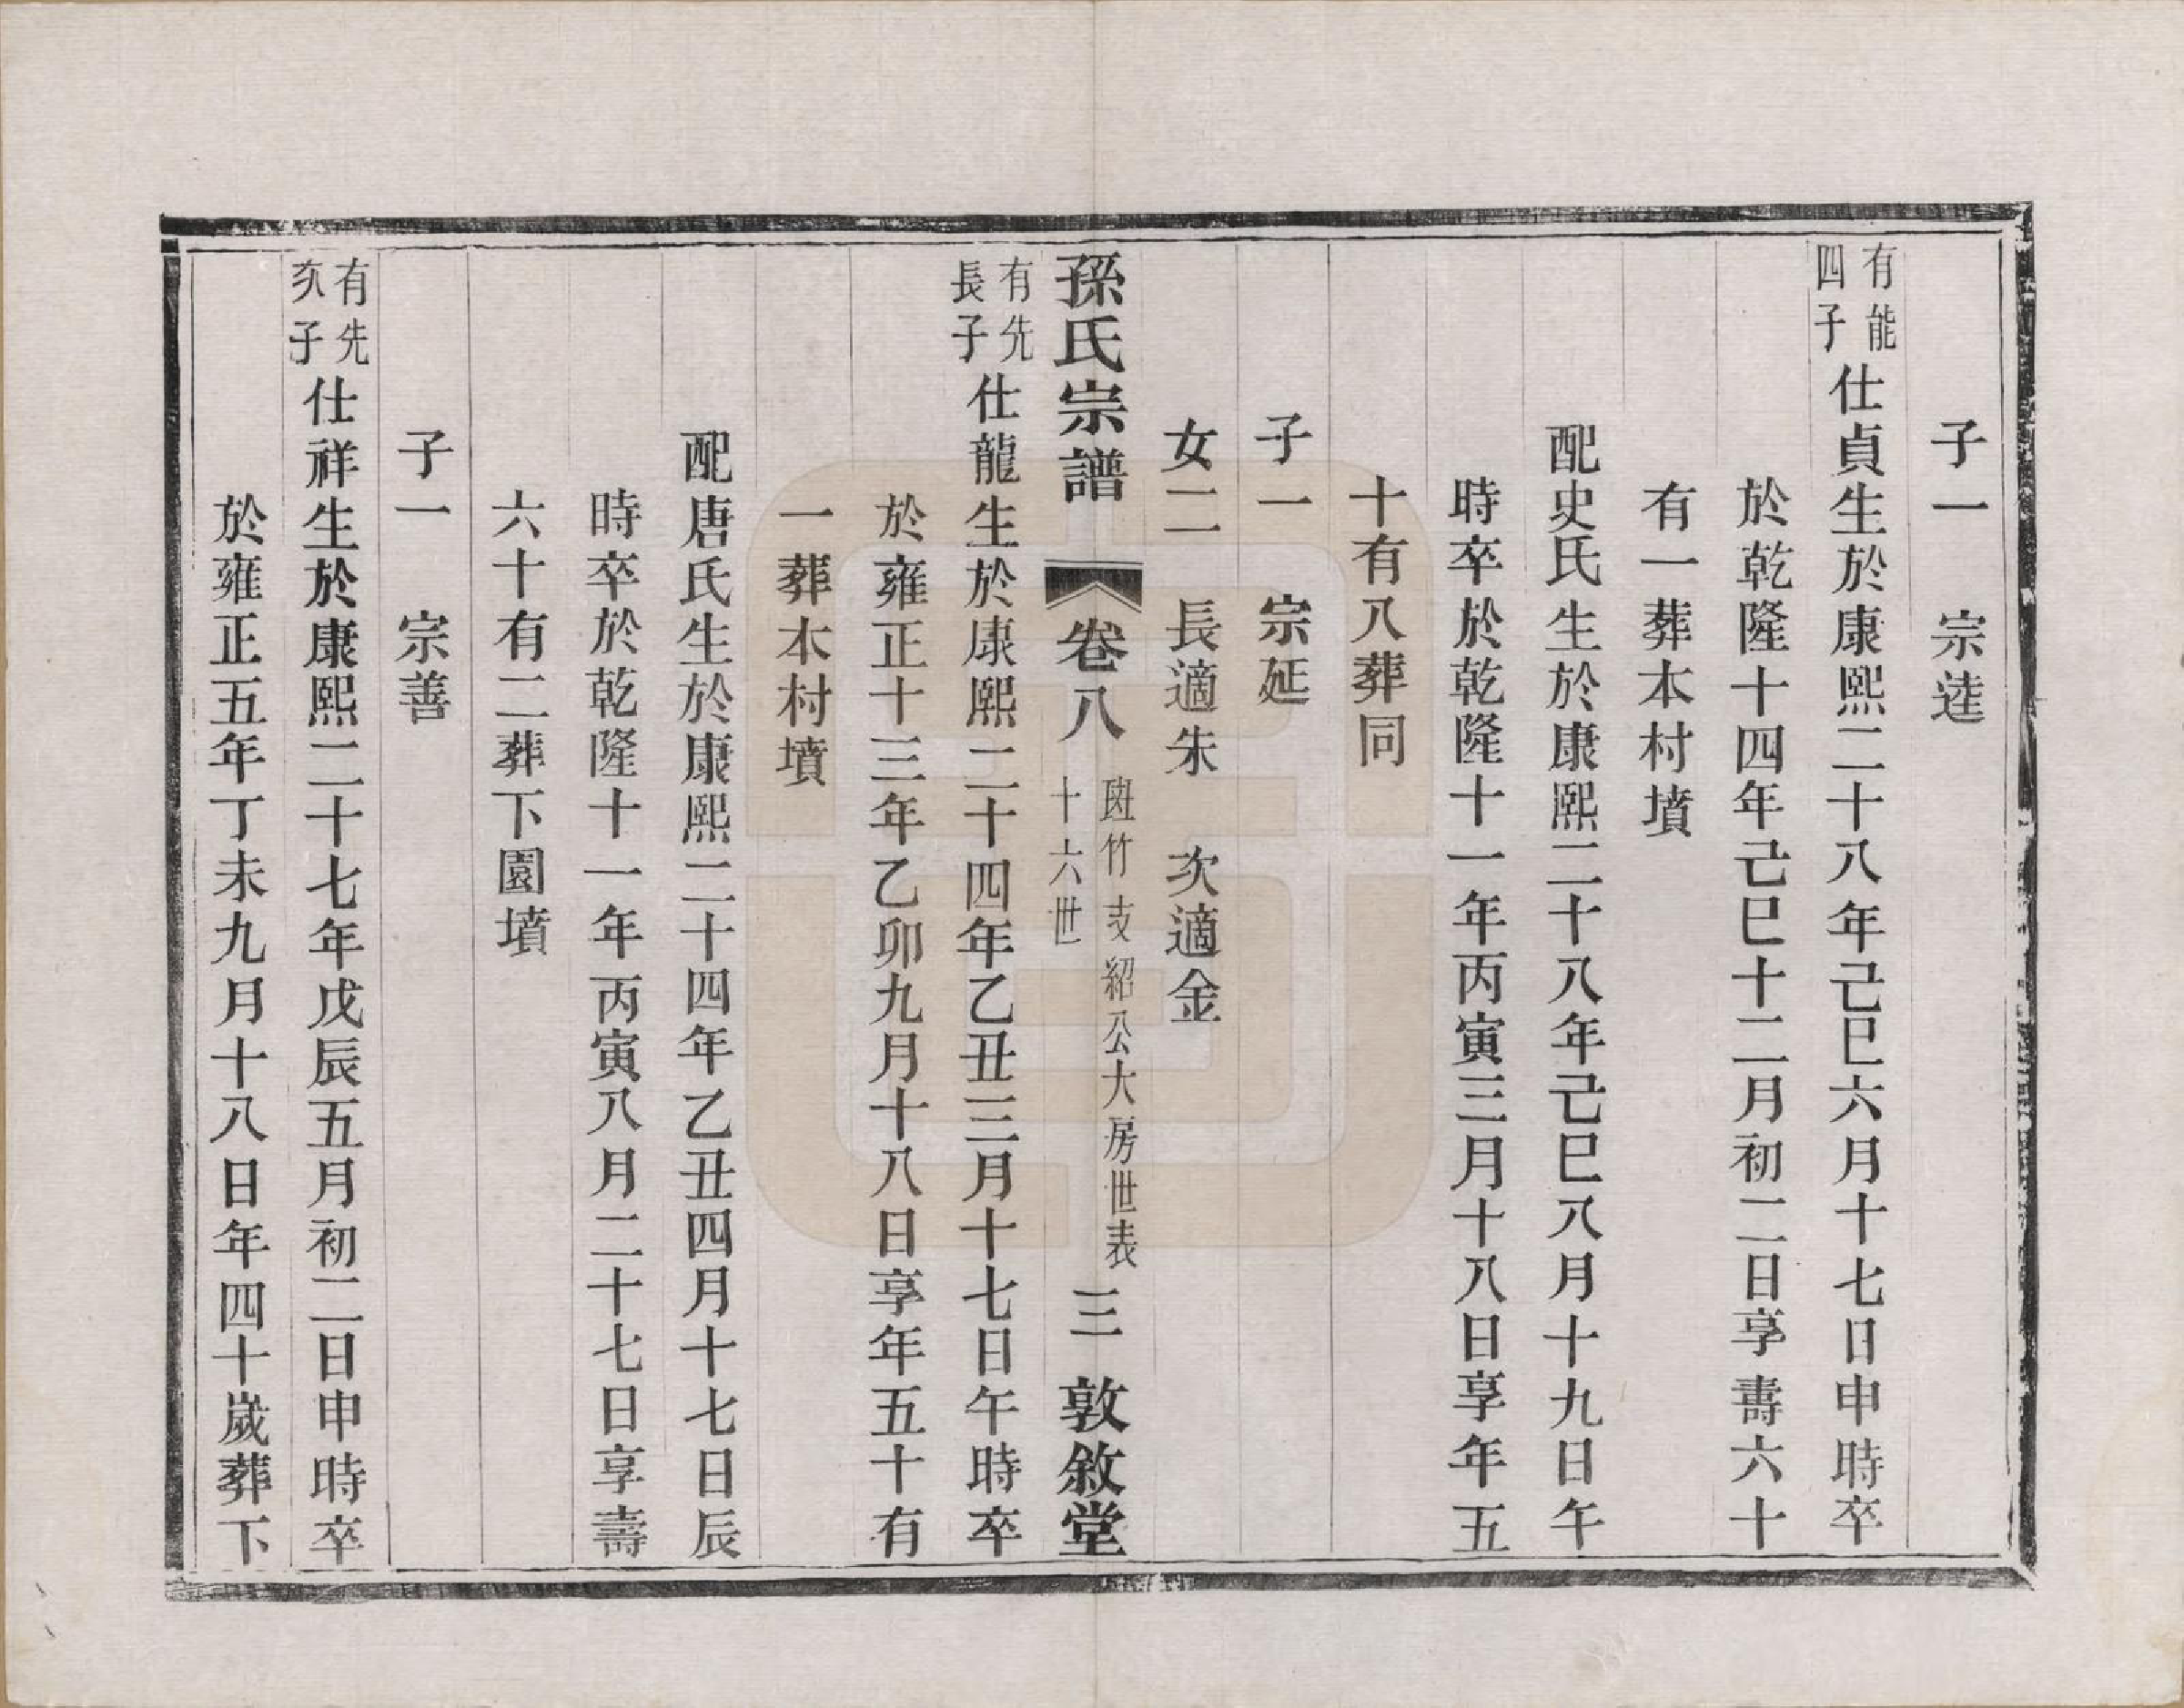 子一　宗逵
有能四子仕貞生於康熙二十八年己巳六月十七日申時卒
於乾隆十四年己巳十二月初二日享壽六十
有一葬本村墳
配史氏生於康熙二十八年己巳八月十九日午
時卒於乾隆十一年丙寅三月十八日享年五
十有八葬同
子一　宗延
女二　長適朱　次適金
孫氏宗譜　卷八　斑竹支紹公大房世表十六世　三　敦敘堂
有先長子仕龍生於康熙二十四年乙丑三月十七日午時卒
於雍正十三年乙卯九月十八日享年五十有
一葬本村墳
配唐氏生於康熙二十四年乙丑四月十七日辰
時卒於乾隆十一年丙寅八月二十七日享壽
六十有二葬下園墳
子一　宗善
有先次子仕祥生於康熙二十七年戊辰五月初二日申時卒
於雍正五年丁未九月十八日年四十歲葬下